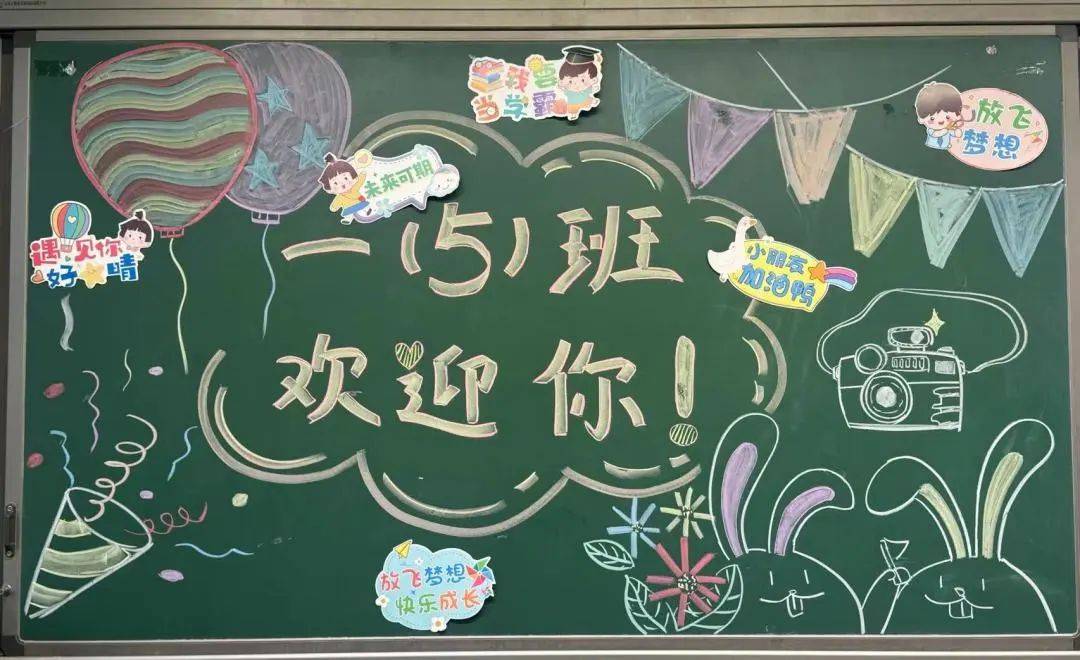 我要
当学霸
放飞
梦想
未来可期
遇见你
好晴
一(5)班
小朋友
加油鸭
欢迎你!
放飞梦想
快乐成长